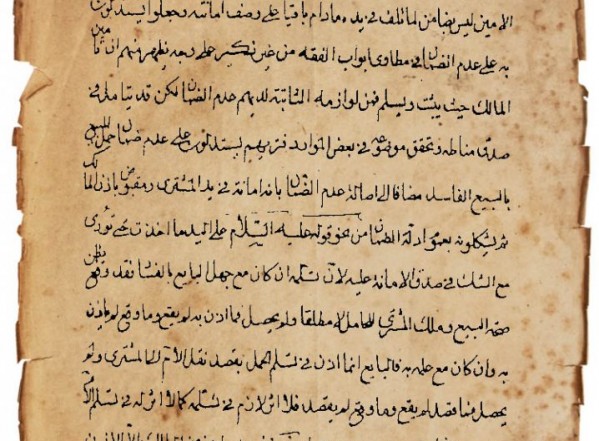 الامين ليس بضامن لما تلف في يده مادام باقيا على وصف امانته وجعلوا يستدلون
به على عدم الضمان في مطاوى ابواب الفقه من غير نكير على وجه يظهر منهم ان تامين
المالك حيث يثبت ويسلم فمن لوازمه الثابتة لديهم عدم الضمان لكن قد يتامل في
صدق مناطه وتحقق موضوعه في بعض الموارد فتريهم يستدلون على عدم ضمان حمل المبيع
بالبيع الفاسد مضافا الى اصالة عدم الضمان بانه امانة في يد المشترى ومقبوض باذن المالك
ثم يشكلونه بعموم ادلة الضمان من نحو قوله عليه السلام على اليد ما اخذت حتى تؤدى
مع الشك في صدق الامانة عليه لان تسلمه ان كان مع جهل البايع بالفساد فقد وقع بظن
صحة البيع وملك المشترى للحامل له مطلقا ولم يحصل فما اذن به لم يقع وما وقع لم ياذن
به وان كان مع علمه به فالبايع انما اذن في تسلم الحمل بقصد نقل الام الى المشترى ولم
يحصل فما قصد لم يقع وما وقع لم يقصد فلا اثر لاذنه في تسلمه كما لا اثر له في تسلم الام